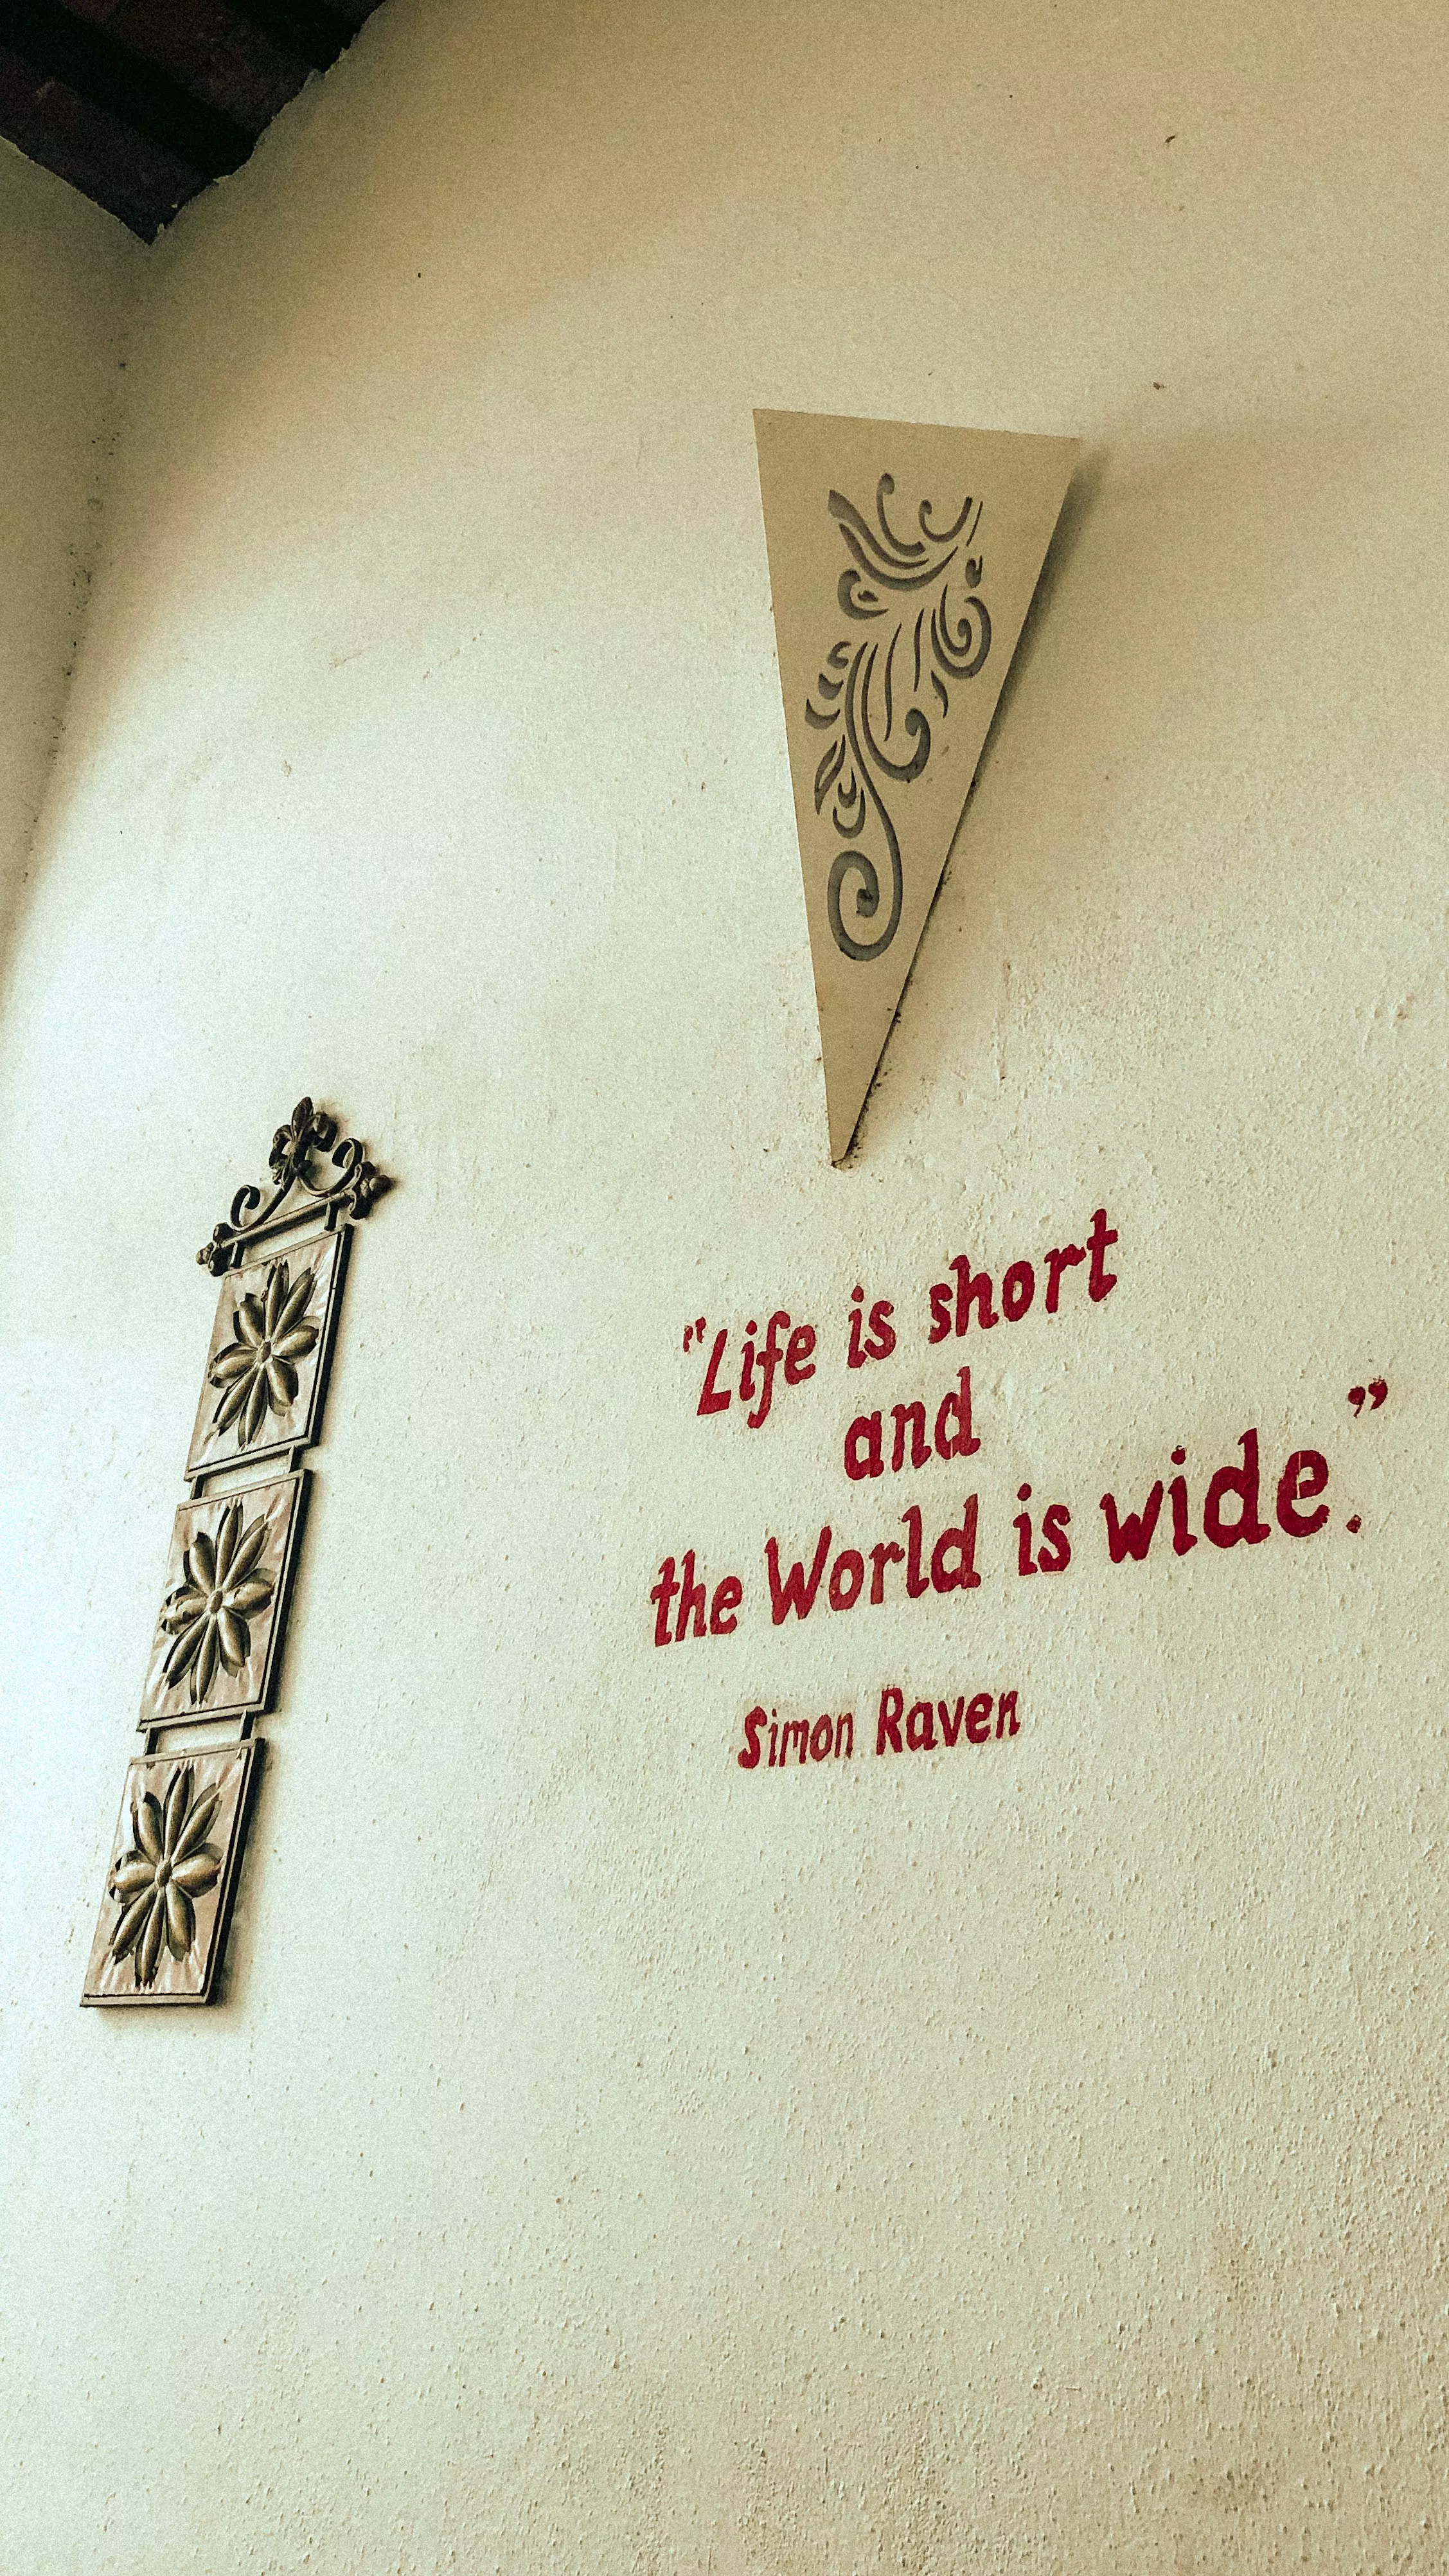 "Life is short
and
the World is wide.”
Simon Raven